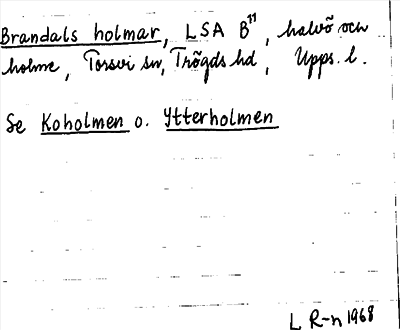 Brandals holmar, LSA B¹¹, halvö och
holme, Torsvi sn, Trögds hd, Upps. l.
Se Koholmen o. Ytterholmen
L R-n 1968